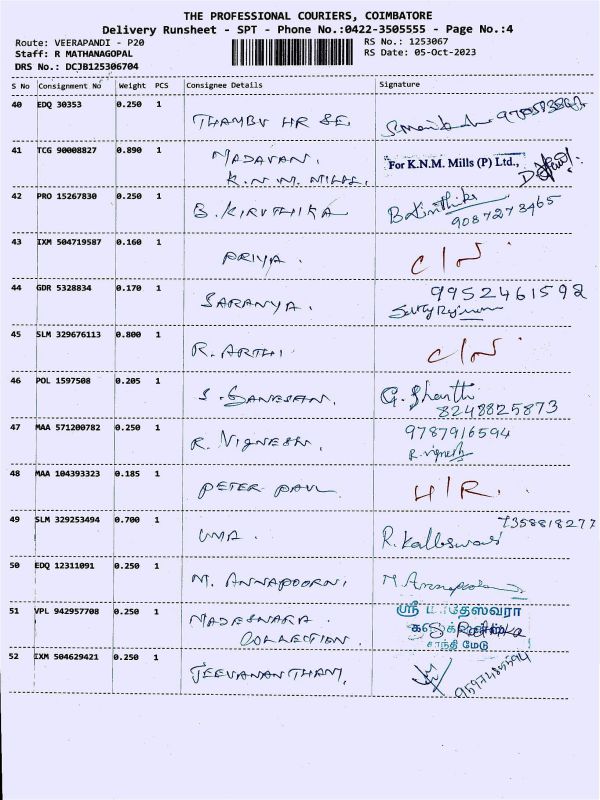 THE PROFESSIONAL COURIERS, COIMBATORE
Delivery Runsheet - SPT - Phone No.:0422-3505555 - Page No.:4
Route: VEERAPANDI - P20
RS No.: 1253067
Staff: R MATHANAGOPAL
RS Date: 05-Oct-2023
DRS No.: DCJB125306704
S No Consignment No Weight PCS Consignee Details Signature
40 EDQ 30353 0.250 1
THAMBU HR SE
41 TCG 90008827 0.890 1
MADAVAN.
K.N.M. MILLS.
For K.N.M. Mills (P) Ltd.,
42 PRO 15267830 0.250 1
B. KIRUTHIKA
B.Kiruthika
9087273465
43 IXM 504719587 0.160 1
PRIYA.
44 GDR 5328834 0.170 1
SARANYA.
9952461592
45 SLM 329676113 0.800 1
R. ARTHI
46 POL 1597508 0.205 1
S. GANESAN.
G. Shanthi
8248825873
47 MAA 571200782 0.250 1
R. VIGNESH.
9787916594
R.vignesh
48 MAA 104393323 0.185 1
PETER PAUL
H/R.
49 SLM 329253494 0.700 1
UMA.
7358818277
R.Kalleswari
50 EDQ 12311091 0.250 1
M. ANNAPOORNI
M Annapoorni
51 VPL 942957708 0.250 1
MADESWARA
COLLECTION.
ஸ்ரீ மாதேஸ்வரா
சாந்தி மேடு
52 IXM 504629421 0.250 1
JEEVANANTHAM.